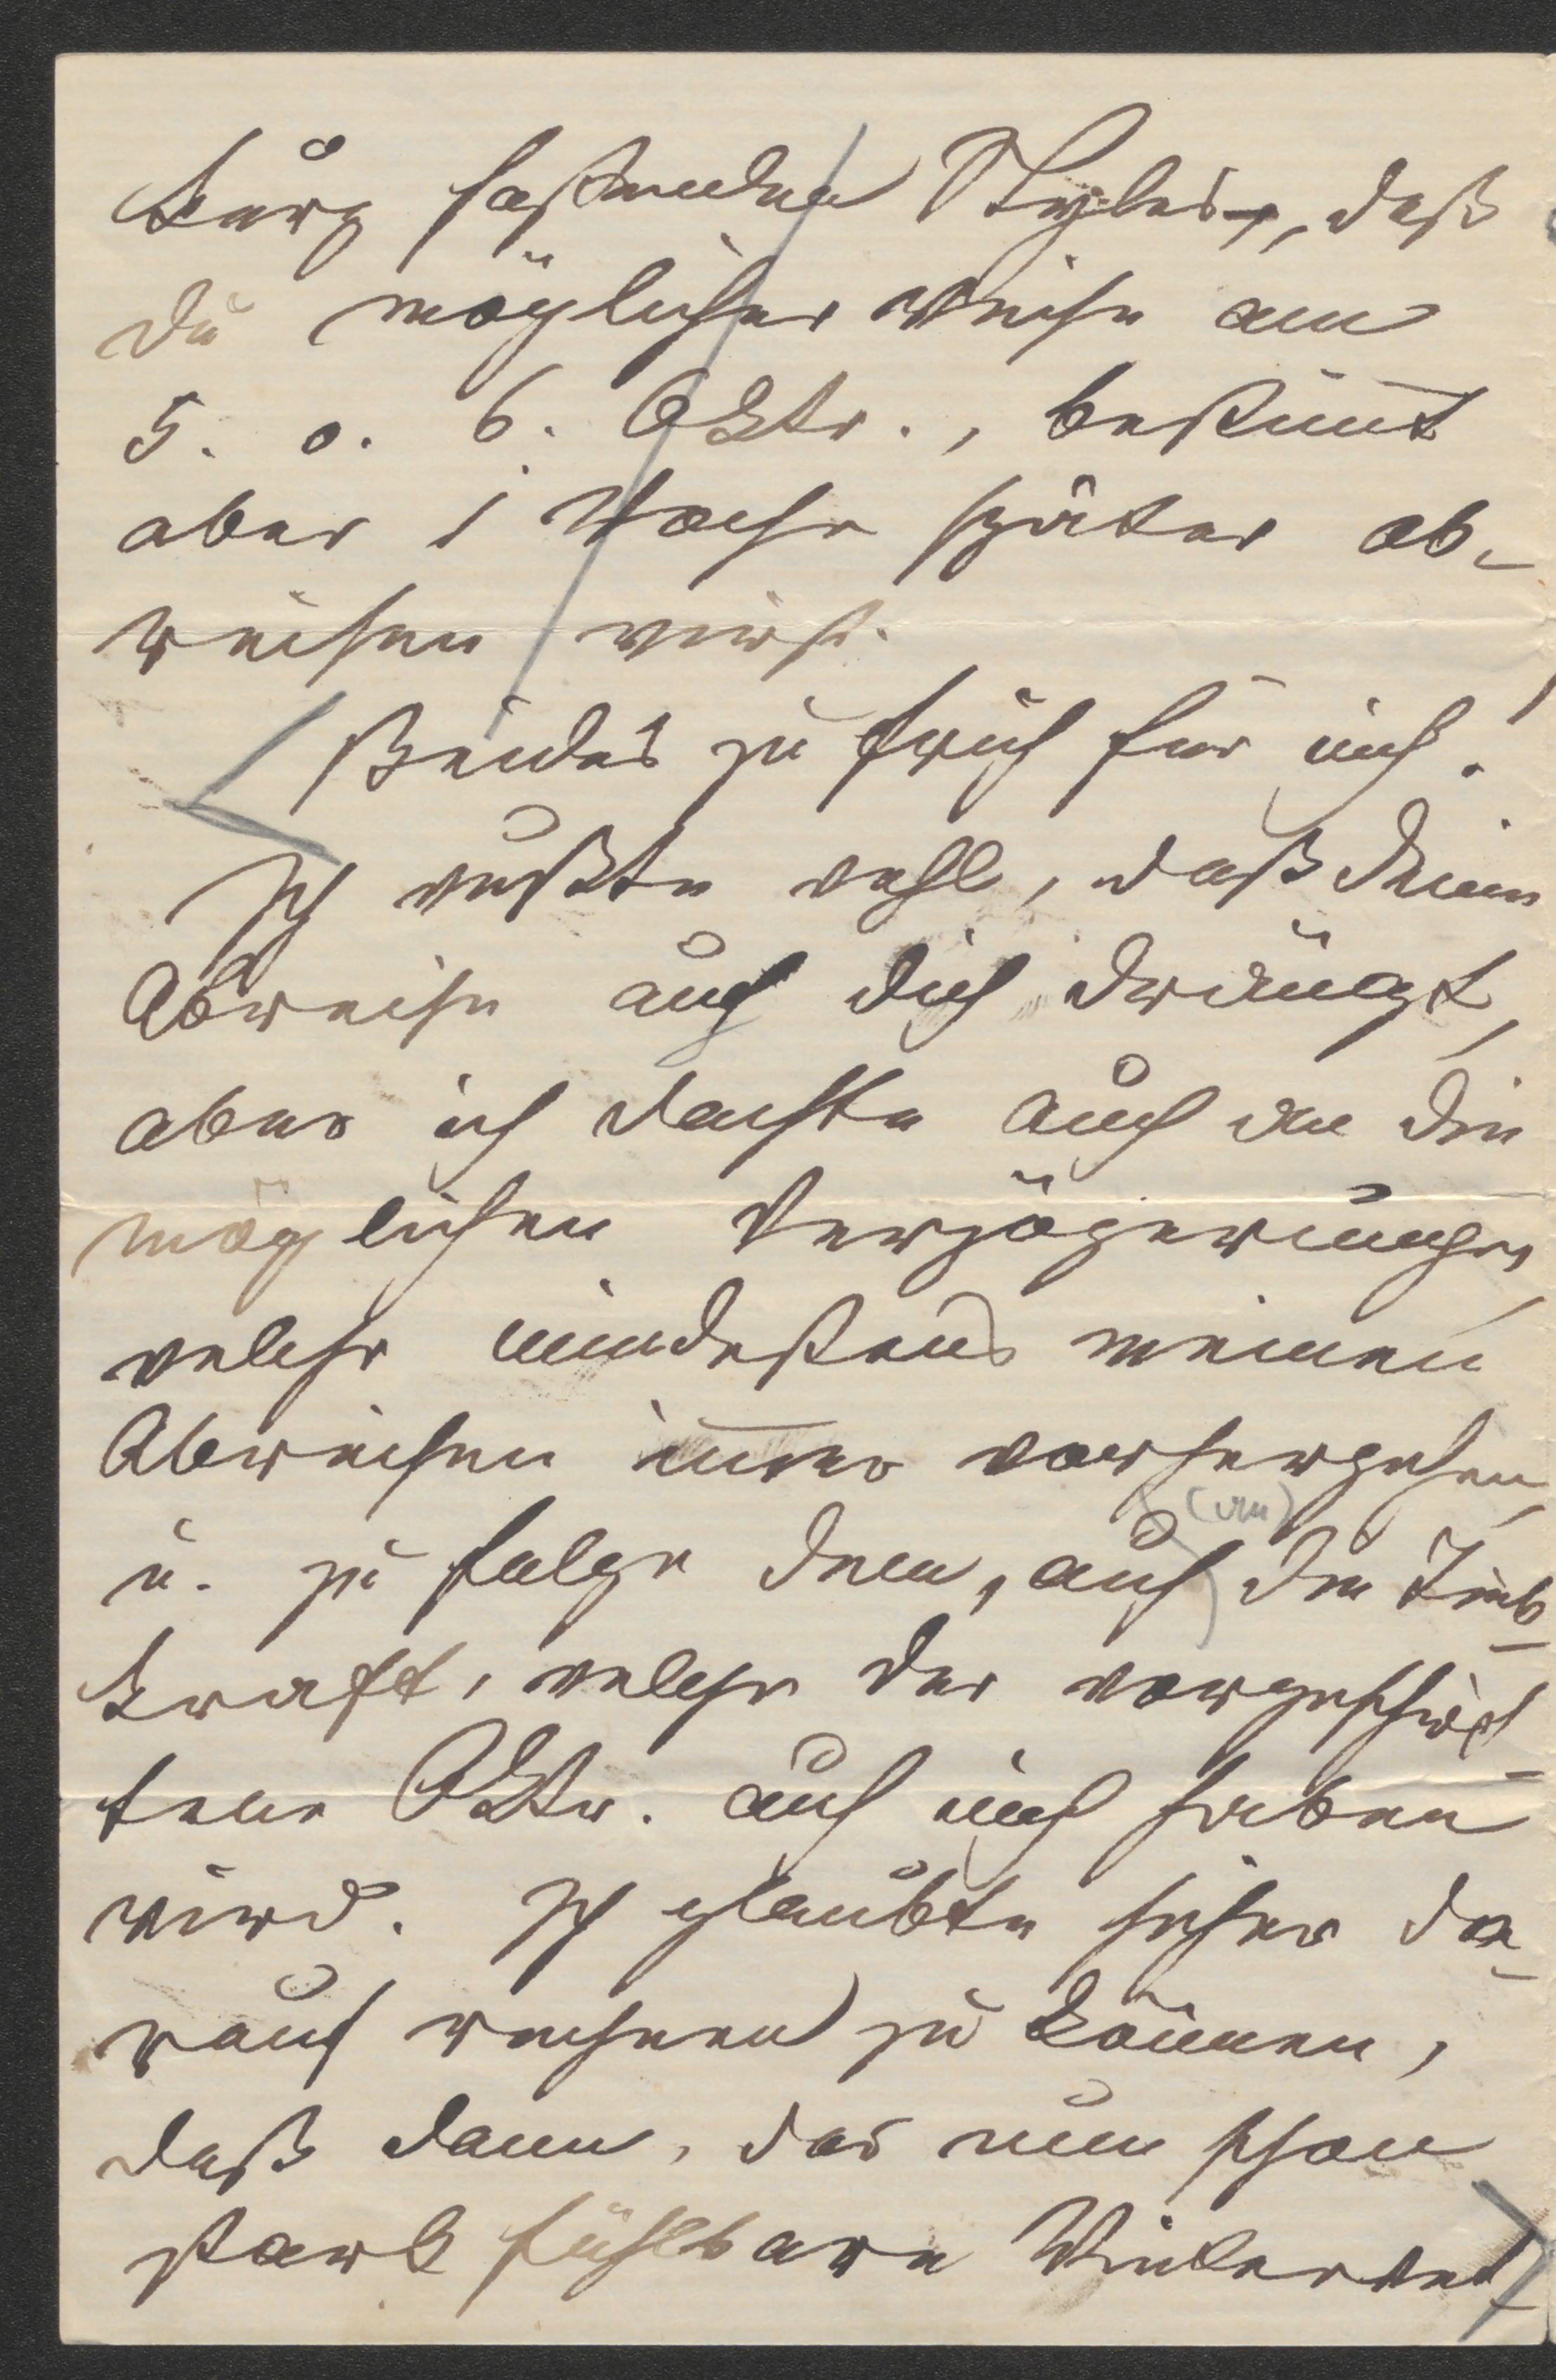 kurz fassenden Styles -, daß
du möglicher Weise am
5. o. 6. Oktr., bestim̅t
aber 1 Woche später ab-
reisen wirst.
Beides zu früh für mich!
Ich wußte wohl, daß deine
Abreise auch dich drängt,
aber ich dachte auch an die
möglichen Verzögerungen,
welche mindestens meinen
Abreisen im̅er vorhergehen,
u. zu folge dem, auch (an) die Trieb-
kraft, welche der vorgeschrit-
tene Oktr. auf mich haben
wird. Ich glaubte sicher da-
rauf rechnen zu können,
daß dann, das nun schon
stark fühlbare Winter